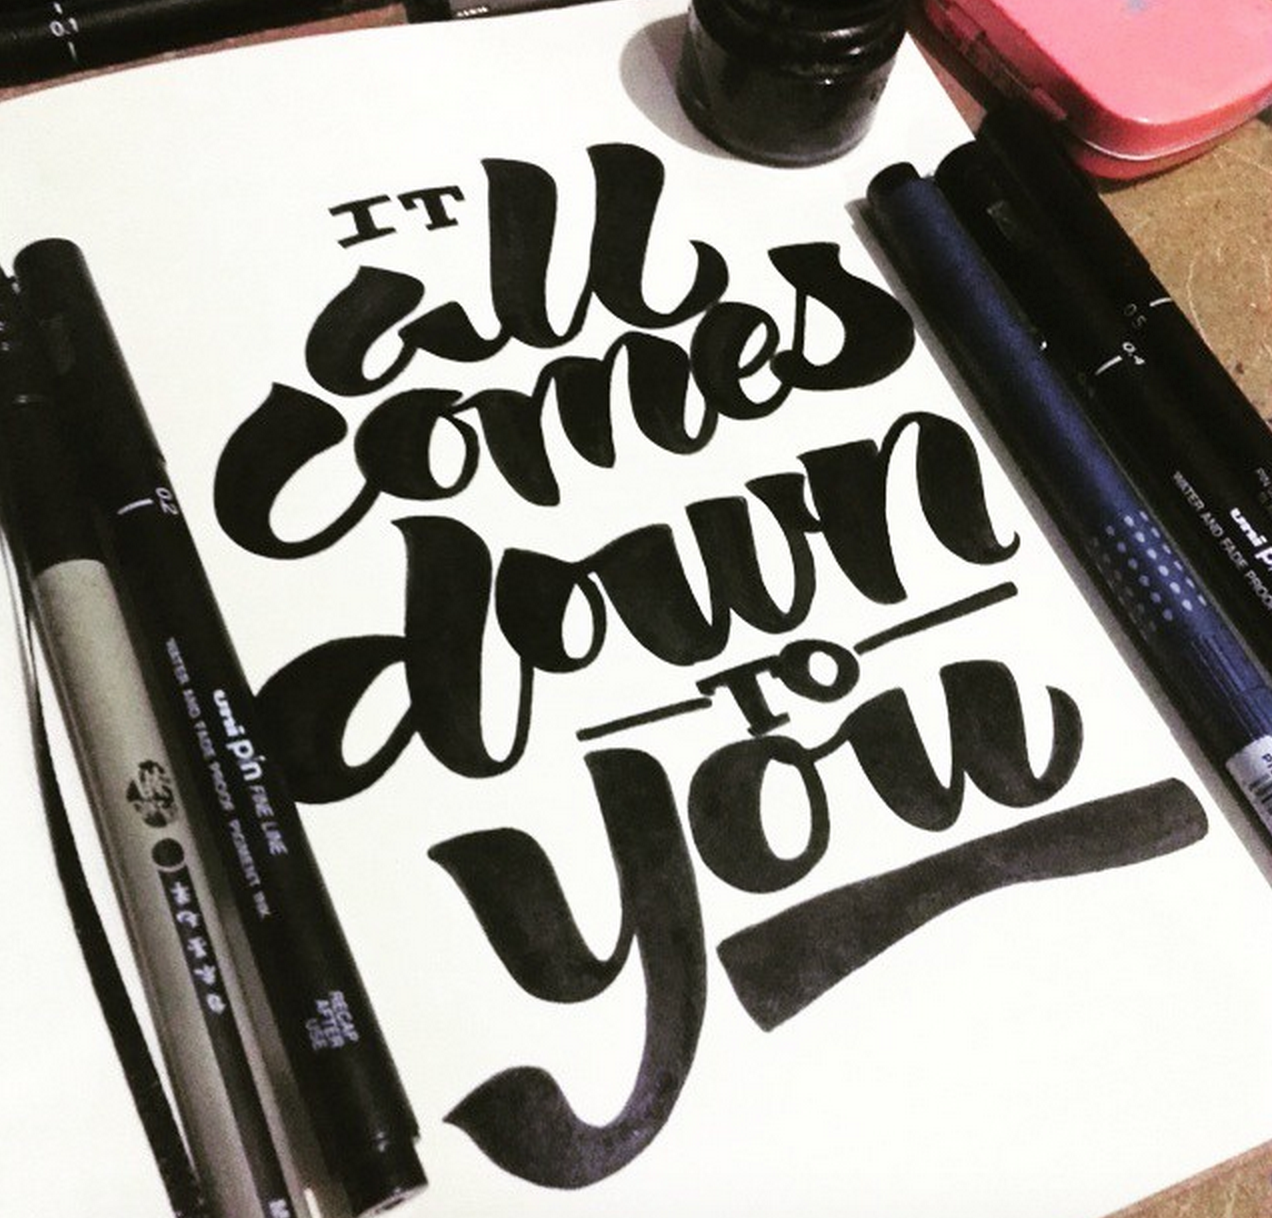 IT all
comes
down
TO
you
0.1
0.2
uni pin FINE LINE
WATER AND FADE PROOF, PIGMENT INK
RECAP
AFTER
USE
0.5
0.4
uni
WATER AND FADE PROOF